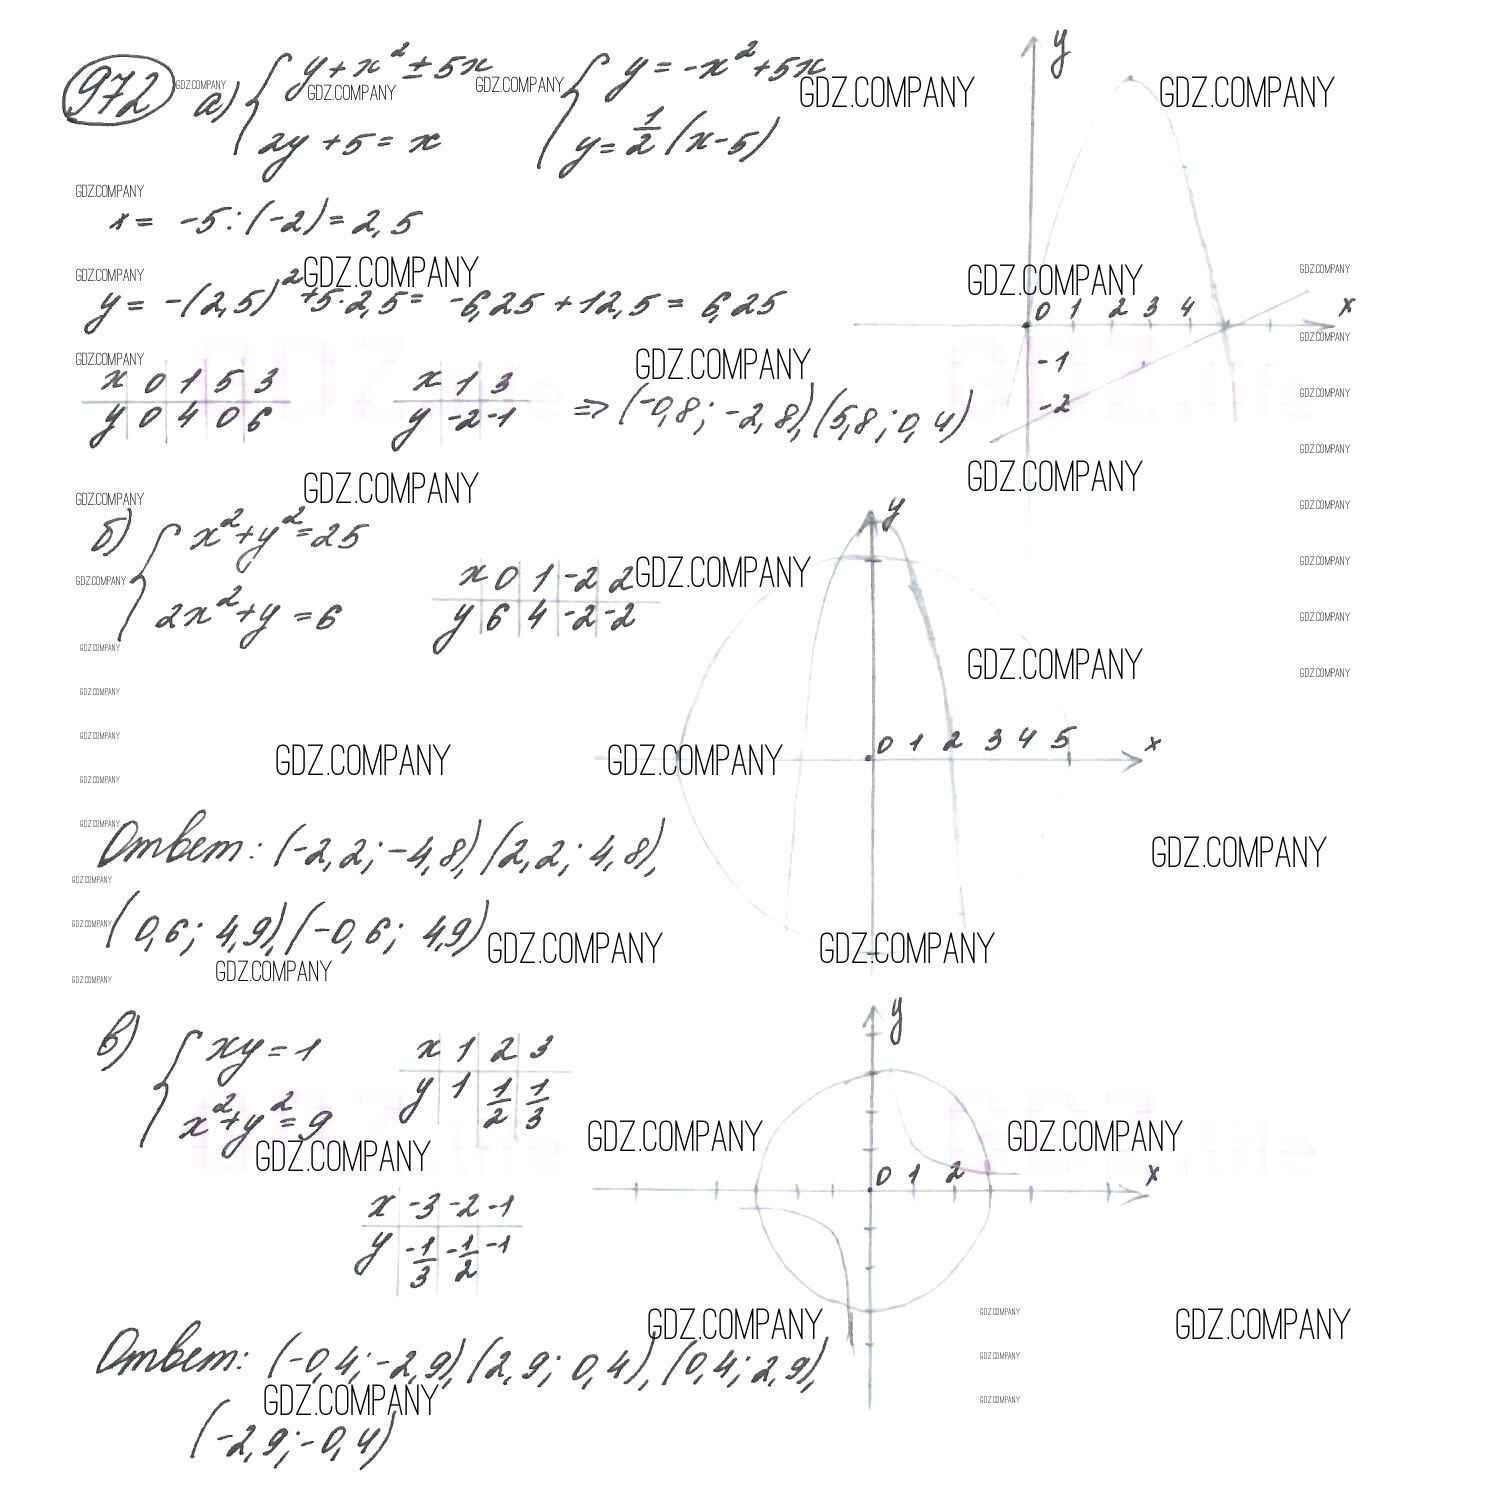 972 а) { y + x² ± 5x { y = -x² + 5x
2y + 5 = x y = 1/2 (x - 5)
x = -5 : (-2) = 2,5
y = -(2,5)² + 5 · 2,5 = -6,25 + 12,5 = 6,25
x 0 1 5 3
y 0 4 0 6
x 1 3
y -2 -1
=> (-0,8; -2,8), (5,8; 0,4)
y
0 1 2 3 4 x
-1
-2
б) { x² + y² = 25
2x² + y = 6
x 0 1 -2 2
y 6 4 -2 -2
y
0 1 2 3 4 5 x
Ответ: (-2,2; -4,8), (2,2; 4,8),
(0,6; 4,9), (-0,6; 4,9)
в) { xy = 1
x² + y² = 9
x 1 2 3
y 1 1/2 1/3
x -3 -2 -1
y -1/3 -1/2 -1
y
0 1 2 x
Ответ: (-0,4; -2,9), (2,9; 0,4), (0,4; 2,9),
(-2,9; -0,4)
GDZ.COMPANY